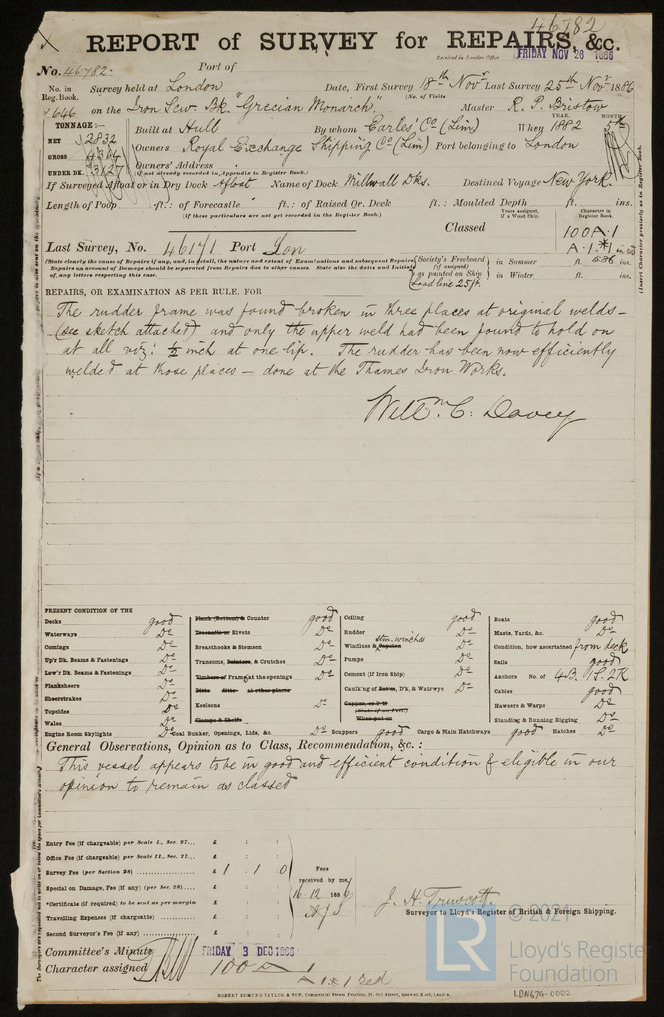 46782
REPORT of SURVEY for REPAIRS, &c.
Received in London Office
FRIDAY NOV 26 1886
No. 46782. Port of
No. in Reg. Book. Survey held at London Date, First Survey 18th Novr Last Survey 25th Novr 1886
(No. of Visits
646 on the Iron Scw. Bk. "Grecian Monarch" Master R. P. Bristow
TONNAGE:— Built at Hull By whom Earles' Co (Lim) When 1882
YEAR. MONTH
NET 2832
GROSS 4364
UNDER DK. 3127
Owners Royal Exchange Shipping Co (Lim) Port belonging to London
Owners' Address
(if not already recorded in Appendix to Register Book.)
If Surveyed Afloat or in Dry Dock Afloat Name of Dock Millwall Dks. Destined Voyage New York.
Length of Poop ft.: of Forecastle ft.: of Raised Qr. Deck ft.: Moulded Depth ft. ins.
(If these particulars are not yet recorded in the Register Book.)
Years assigned, if a Wood Ship.
Character in Register Book.
Classed 100A.1
A.1.*1
5.86
Last Survey, No. 46171 Port Lon
(State clearly the cause of Repairs if any, and, in detail, the nature and extent of Examinations and subsequent Repairs.
Repairs on account of Damage should be separated from Repairs due to other causes. State also the dates and Initials
of any letters respecting this case.
Society's Freeboard (if assigned) as painted on Ship
in Summer ft. ins.
in Winter ft. ins.
Load line 25ft
(Insert Character precisely as in Register Book.
REPAIRS, OR EXAMINATION AS PER RULE, FOR
The rudder frame was found broken in three places at original welds —
(see sketch attached) and only the upper weld had been found to hold on
at all viz: ½ inch at one lip. The rudder has been now efficiently
welded at those places — done at the Thames Iron Works.
Willm. C. Davey
PRESENT CONDITION OF THE
Decks good
Waterways Do
Comings Do
Up'r Dk. Beams & Fastenings Do
Low'r Dk. Beams & Fastenings Do
Planksheers Do
Sheerstrakes Do
Topsides Do
Wales Do
Engine Room Skylights Do
Plank (Bottom) & Counter good
Treenails or Rivets Do
Breasthooks & Stemson Do
Transoms, Pointers, & Crutches Do
Timbers of Frame at the openings Do
Ditto ditto at other places
Keelsons Do
Clamps & Shelfs
Coal Bunker, Openings, Lids, &c. Do
Ceiling good
Rudder Do
stm. winches
Windlass & Capstan Do
Pumps Do
Cement (if Iron Ship) Do
Caulk'ng of Botm, D'k, & Watrwys Do
Copper, or Y.M.
When put on
Scuppers good Cargo & Main Hatchways good Hatches Do
Boats good
Masts, Yards, &c. Do
Condition, how ascertained from deck
Sails good
Anchors No. of 4B. 1S. 2K
Cables good
Hawsers & Warps Do
Standing & Running Rigging Do
General Observations, Opinion as to Class, Recommendation, &c.:
This vessel appears to be in good and efficient condition & eligible in our
opinion to remain as classed
Entry Fee (if chargeable) per Scale I., Sec. 27... £ : :
Office Fee (if chargeable) per Scale II., Sec. 27... £ : :
Survey Fee (per Section 28) £ 1 : 1 : 0
Special on Damage, Fee (if any) (per Sec. 28) £ : :
*Certificate (if required) to be sent as per margin £ : :
Travelling Expenses (if chargeable) £ : :
Second Surveyor's Fee (if any) £ : :
Fees received by me,
16.12.1886
J. H. Truscott.
Surveyor to Lloyd's Register of British & Foreign Shipping.
Committee's Minute FRIDAY 3 DEC 1886
Character assigned 100 A 1
A.1.*1 red
ROBERT EDMUND TAYLOR & SON, Commercial Steam Printers, 19, Old Street, Goswell Road, London.
LR
© 2021
Lloyd's Register
Foundation
LDN674-0002